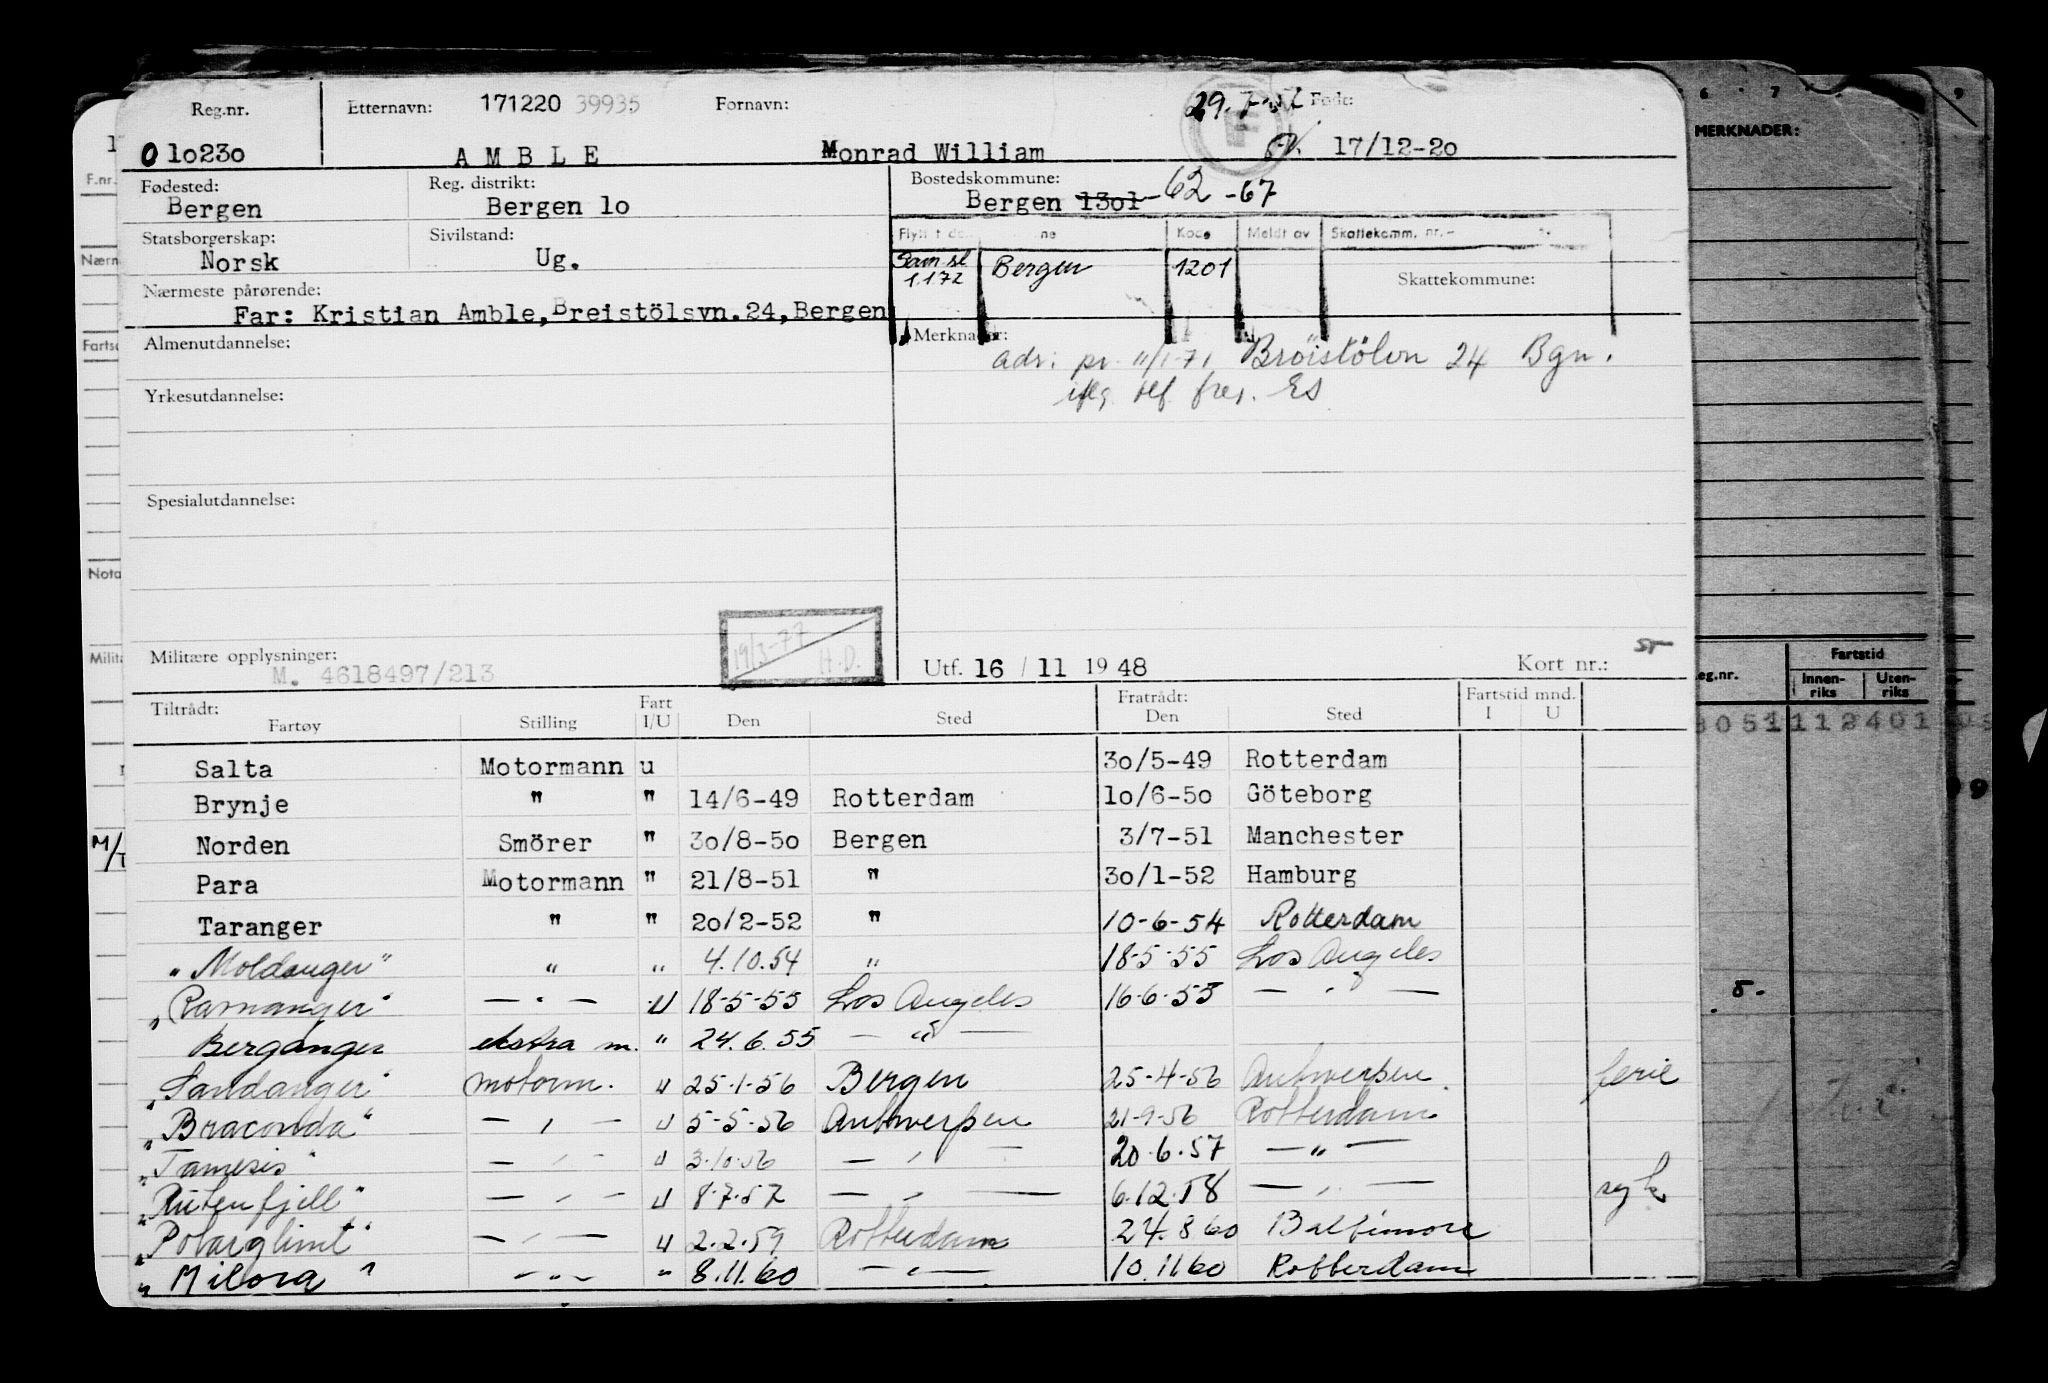 Reg.nr. Etternavn: 171220 39935 Fornavn: 29.7-57 Født:
010230 AMBLE Monrad William 17/12-20
Fødested: Reg. distrikt: Bostedskommune:
Bergen Bergen 10 Bergen 1301 -62 -67
Statsborgerskap: Sivilstand: Kode Meldt av Skattekomm. nr.
Norsk Ug. 1.1.72 Bergen 1201 Skattekommune:
Nærmeste pårørende:
Far: Kristian Amble, Breistölsvn.24, Bergen
Almenutdannelse: Merknader:
adr. pr. 11/1-71 Bröistölvn 24 Bgn.
iflg. tlf. ES
Yrkesutdannelse:
Spesialutdannelse:
19/3-77 H.D.
Militære opplysninger: Utf. 16 / 11 1948 Kort nr.:
M. 4618497/213
Tiltrådt: Fart Fratrådt: Fartstid mnd.
Fartøy Stilling I/U Den Sted Den Sted I U
Salta Motormann u 30/5-49 Rotterdam
Brynje " " 14/6-49 Rotterdam 10/6-50 Göteborg
Norden Smörer " 30/8-50 Bergen 3/7-51 Manchester
Para Motormann " 21/8-51 " 30/1-52 Hamburg
Taranger " " 20/2-52 " 10-6-54 Rotterdam
"Moldanger" " " 4.10.54 " 18-5-55 Los Angeles
"Ravnanger" — " — U 18-5-55 Los Angeles 16-6-55 — " —
Berganger ekstra m. " 24.6.55 — " —
"Sandanger" motorm. U 25-1-56 Bergen 25-4-56 Antwerpen ferie
"Braconda" — " — U 5-5-56 Antwerpen 21-9-56 Rotterdam
"Tamesis" — " — U 3-10-56 — " — 20.6.57 — " —
"Rutenfjell" — " — U 8.7.57 — " — 6.12.58 — " — syk
"Polarglimt" — " — U 2.2.59 Rotterdam 24.8.60 Baltimore
"Milora" — " — " 8.11.60 — " — 10.11.60 Rotterdam
F.nr.
Nærm
Fartsø
Nota
Milit
M/T
6 7 9
MERKNADER:
Fartstid
eg.nr. Innen-riks Uten-riks
8051112401